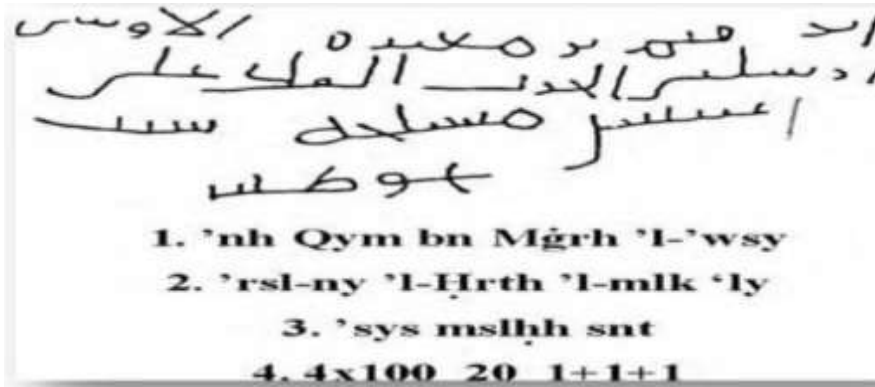 انه قيم بن مغيره الاوسي
ارسلني الحرث الملك على
اسيس مسلحه سنت
1. ’nh Qym bn Mġrh ’l-’wsy
2. ’rsl-ny ’l-Ḥrth ’l-mlk ‘ly
3. ’sys mslḥh snt
4. 4x100 20 1+1+1